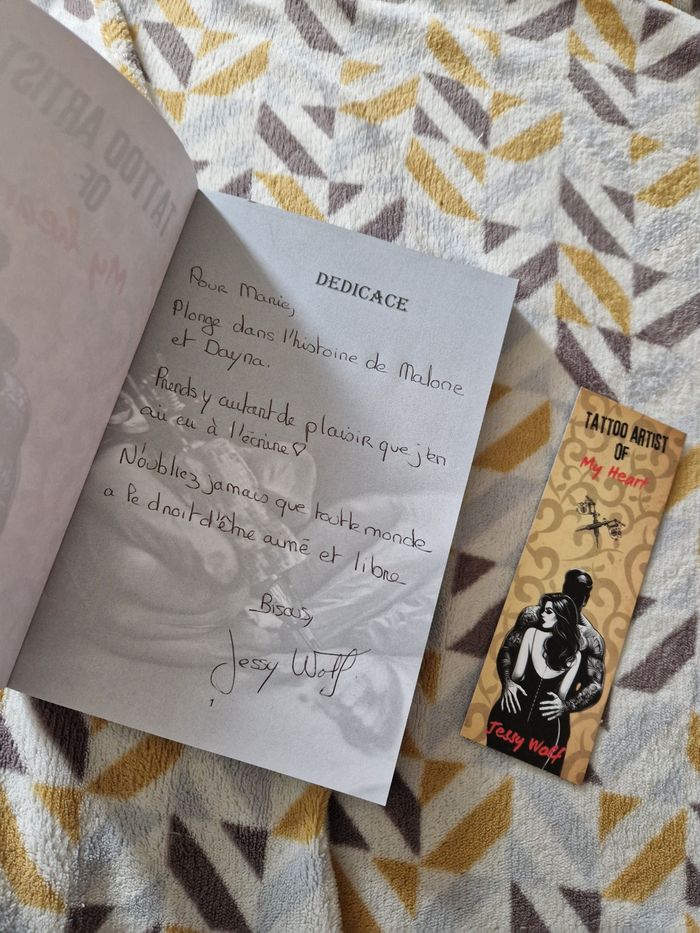 TATTOO ARTIST
OF
My Heart
DEDICACE
Pour Marie,
Plonge dans l'histoire de Malone
et Dayna.
Prends y autant de plaisir que j'en
ai eu à l'écrire♡
N'oubliez jamais que tout le monde
a le droit d'être aimé et libre
Bisous,
Jessy Wolf
1
TATTOO ARTIST
OF
My Heart
Jessy Wolf